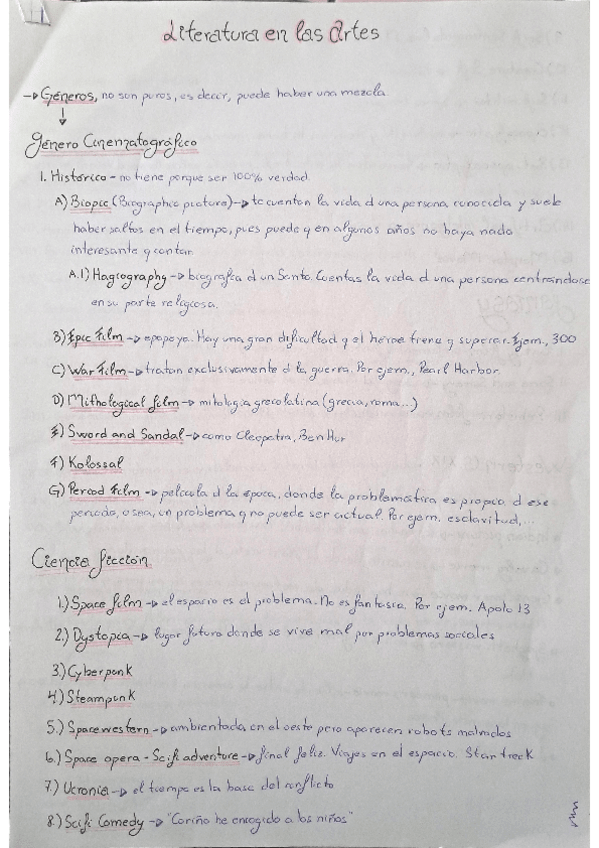 Literatura en las Artes
→ Géneros, no son puros, es decir, puede haber una mezcla.
↓
Género Cinematográfico
1. Histórico - no tiene porque ser 100% verdad.
A) Biopic (Biographic picture) → te cuentan la vida d una persona conocida y suele
haber saltos en el tiempo, pues puede q en algunos años no haya nada
interesante q contar.
A.1) Hagiography → biografía d un Santo. Cuentas la vida d una persona centrándose
en su parte religiosa.
B) Epic Film → epopeya. Hay una gran dificultad q el héroe tiene q superar. Ejem., 300
C) War Film → tratan exclusivamente d la guerra. Por ejem., Pearl Harbor.
D) Mithological film → mitología grecolatina (grecia, roma...)
E) Sword and Sandal → como Cleopatra, Ben Hur
F) Kolossal
G) Period Film → película d la época, donde la problemática es propia d ese
periodo, o sea, un problema q no puede ser actual. Por ejem. esclavitud,...
Ciencia ficción
1.) Space film → el espacio es el problema. No es fantasía. Por ejem. Apolo 13
2.) Dystopia → lugar futuro donde se vive mal por problemas sociales
3.) Cyberpunk
4) Steampunk
5.) Spacewestern → ambientada en el oeste pero aparecen robots malvados
6.) Space opera - Scifi adventure → final feliz. Viajes en el espacio. Star treck
7.) Ucronia → el tiempo es la base del conflicto
8.) Scifi Comedy → "Cariño he encogido a los niños"